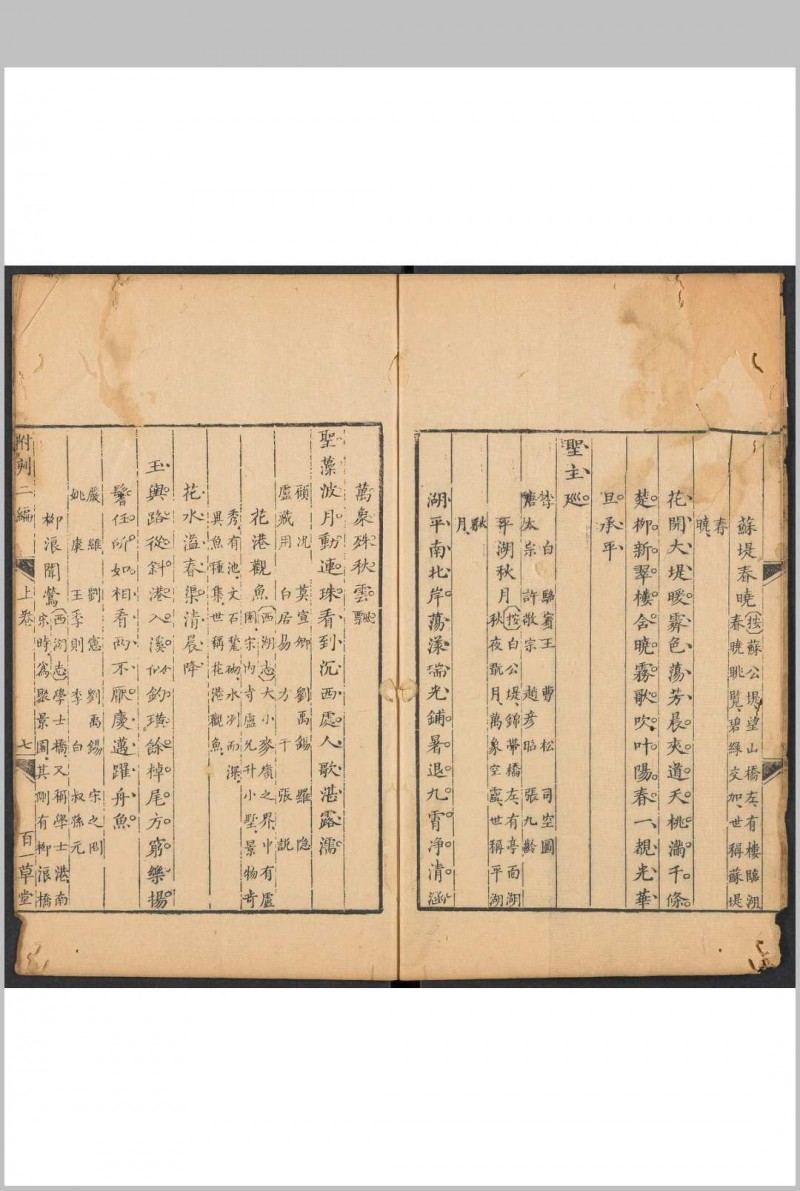 蘇堤春曉(按)蘇公堤望山橋左有樓臨湖
春曉眺覧碧綠交加世稱蘇堤
春
曉
花開大堤暖霽色蕩芳晨夾道夭桃滿千條
楚柳新翠樓含曉霧歌吹叶陽春一覩光華
旦承平
聖主廵
李白 駱賔王 曹松 司空圖
唐太宗 許敬宗 趙彦昭 張九齡
平湖秋月(按)白公堤錦帶橋左有亭面湖
秋夜翫月萬象空寘世稱平湖
秋
月
湖平南北岸蕩漾瑞光鋪暑退九霄净清涵
萬象殊秋雲飄
聖藻波月動連珠看到沉西處人歌湛露濡
顧况 莫宣卿 劉禹錫 羅隱
盧藏用 白居易 方干 張說
花港觀魚(西湖志)大小麥嶺之界中有盧
園宋内寺盧允升小墅景物奇
秀有池文石甃砌水冽而深
異魚種集世稱花港觀魚
花水溢春渠清晨降
玉輿路從斜港入溪似釣璜餘棹尾方窮樂揚
鬐任所如相看兩不厭慶邁躍舟魚
嚴維 劉憲 劉禹錫 宋之問
姚康 王季則 李白 叔孫元
柳浪聞鶯(西湖志)學士橋又稱學士港南
宋時爲聚景園其側有柳浪橋
附刻二編 上卷 七 百一草堂